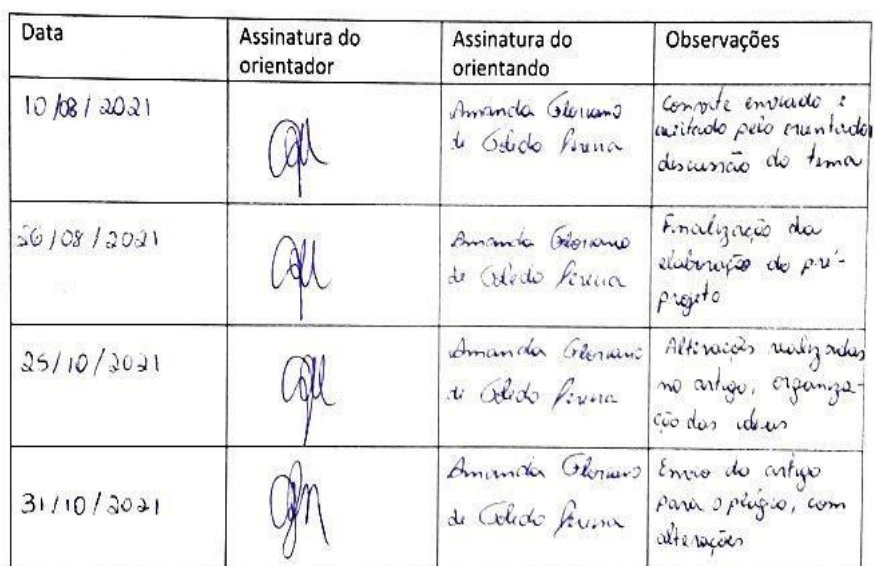 Data
Assinatura do
orientador
Assinatura do
orientando
Observações
10/08/2021
Amanda Gloriano
de Toledo Pereira
Convite enviado e
aceitado pelo orientador
discussão do tema
26/08/2021
Amanda Gloriano
de Toledo Pereira
Finalização da
elaboração do pré-
projeto
25/10/2021
Amanda Gloriano
de Toledo Pereira
Alterações realizadas
no artigo, organiza-
ção das ideias
31/10/2021
Amanda Gloriano
de Toledo Pereira
Envio do artigo
para o plágio, com
alterações